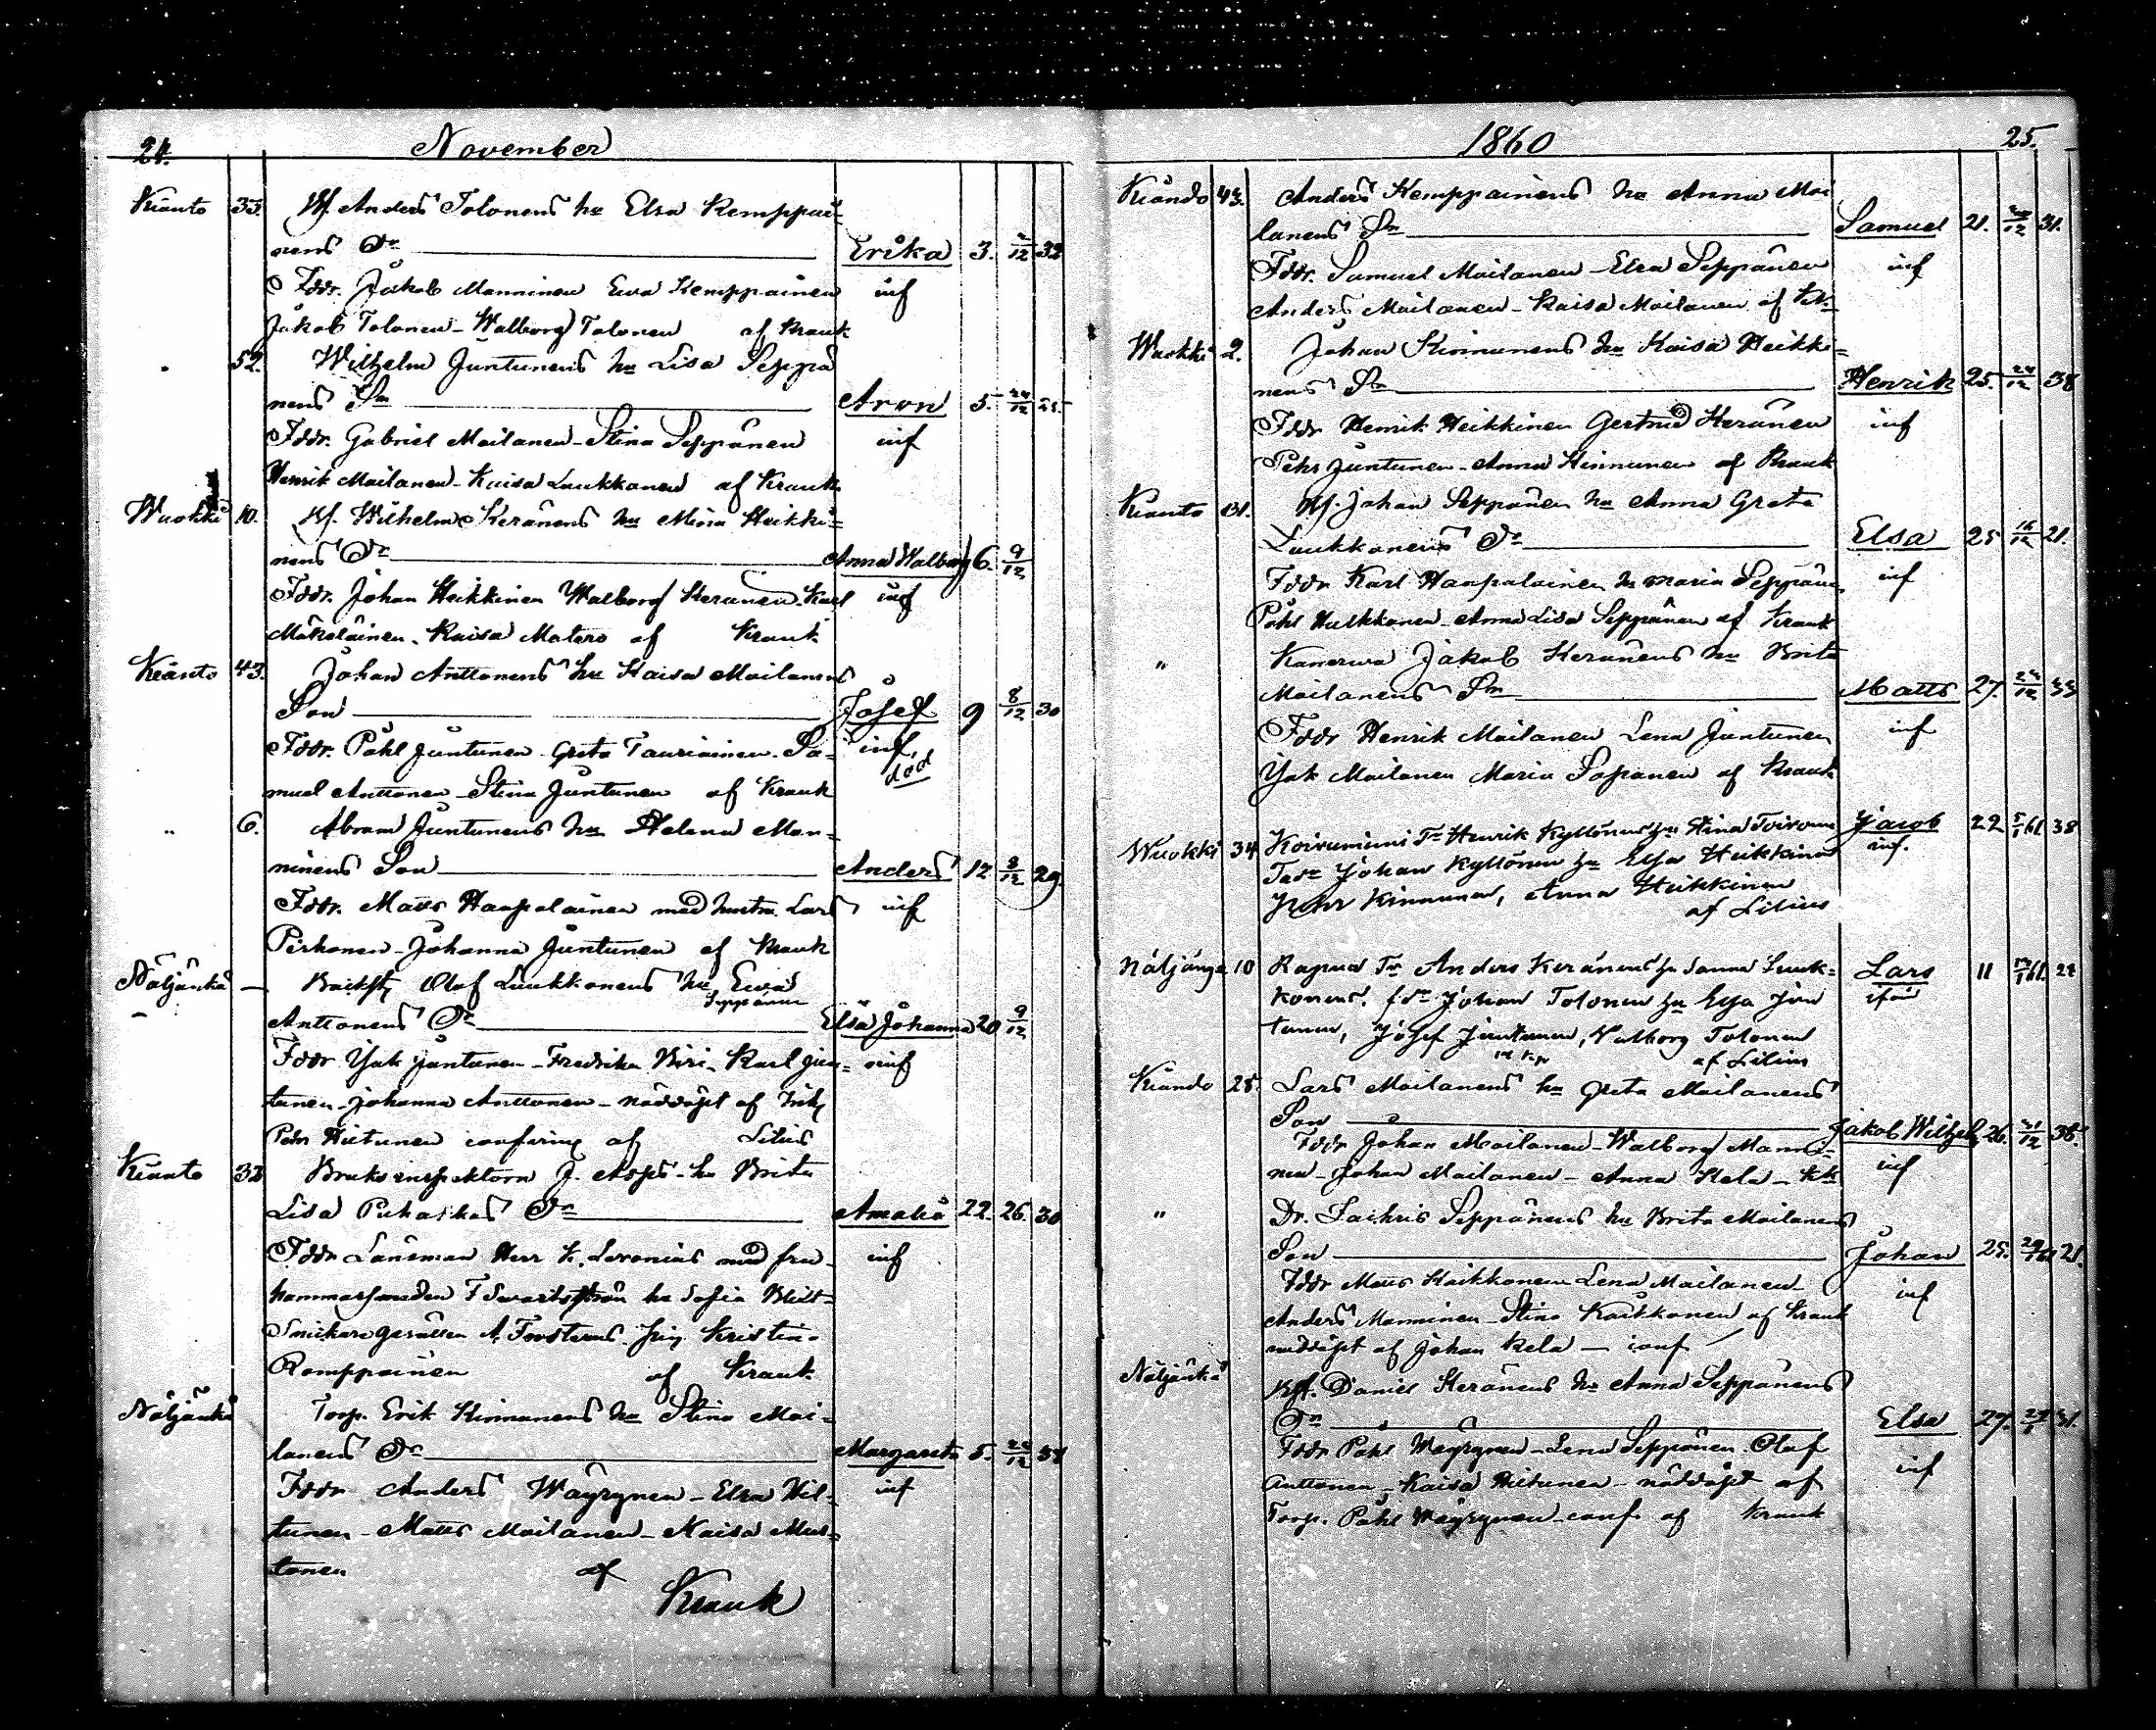 24. November
Kianto 33. Anders Tolonens hu Elsa Kemppai-
nens Dr Erika 3. 2/12 32
Fddr. Jakob Manninen Ewa Kemppainen inf
Jakob Tolonen - Walborg Tolonen af Krank
" 52. Wilhelm Juntunens hu Lisa Seppä
nens Sn Aron 5. 24/12 25
Fddr. Gabriel Moilanen - Stina Seppänen inf
Henrik Moilanen - Kaisa Luukkonen af Krank
Wuokki 10. Wilhelm Keränens hu Mina Heikki-
nens Dr Anna Walborg 6. 9/12
Fddr. Johan Heikkinen Walborg Keränen - Karl inf
Mäkeläinen - Kaisa Matero af Krank
Kianto 43. Johan Anttonens hu Kaisa Moilanens
Son Josef 9 8/12 30
Fddr. Påhl Juntunen - Greta Tauriainen - Sa- inf
död
muel Anttonen - Stina Juntunen af Krank
" 6. Abram Juntunens hu Helena Man-
ninens Son Anders 12 2/12 29.
Fddr. Matts Haapalainen med hustru Lars inf
Pirhonen - Johanna Juntunen af Krank
Näljänkä — Olof Luukkonens hu Ewa
Seppänen
Anttonens Dr Elsa Johanna 20 9/12
Fddr Isak Juntunen - Fredrika - Karl Jun- inf
tunen - Johanna Anttonen - nöddöpt af
Pehr Hiltunen af Lilius
Kianto 32 Bruksinspektorn J. Asps - hu Brita
Lisa Dr Amalia 22. 26. 30
Fddr Länsman Herr K. Leronius med fru inf
hammarsmeden F hu Sofia
Snickaregesällen A. Kristina
Romppainen af Krank
Näljänkä Torp. Erik Kinnunens hu Stina Moi-
lanens Dr Margareta 5. 24/12 34
Fddr Anders Wäyrynen - Elsa Hil- inf
tunen - Matts Moilanen - Kaisa Mus-
tonen af
Krank
1860 25.
Kiando 43. Anders Kemppainens hu Anna Moi
lanens Sn Samuel 21. 31.
Fddr. Samuel Moilanen - Elsa Seppänen inf
Anders Moilanen - Kaisa Moilanen af
Wuokki 2. Johan Kinnunens hu Kaisa Heikki-
nens Sn Henrik 25. 24/12 38
Fddr Henrik Heikkinen Gertrud Keränen inf
Pehr Juntunen - Anna Kinnunen af Krank
Kianto 31. Johan Seppänen hu Anna Greta
Luukkonens Dr Elsa 25 16/12 21.
Fddr Karl Haapalainen hu Maria Seppänen inf
Påhl Huikkonen - Anna Lisa Seppänen af Krank
" Kanerwa Jakob Keränens hu Brita
Moilanens Sn Matts 27. 33
Fddr Henrik Moilanen Lena Juntunen inf
Isak Moilanen Maria af Krank
Wuokki 34 Koivuniemi Tr Henrik Kyllönens hu Stina Toivonen Jacob 22 38
Johan Kyllönen hu Elsa Heikkinen inf.
Pehr Kinnunen, Anna Heikkinen
af Lilius
Näljänge 10 Rapua Tr Anders Keränens hu Sanna Luuk- Lars 11
konens. Johan Tolonen hu Elsa Jun
tunen, Josef Juntunen, Walborg Tolonen
af Lilius
Kiando 25. Lars Moilanens hu Greta Moilanens
Son Jakob Wilhelm 26. 31/12 36.
Fddr Johan Moilanen - Walborg Manni- inf
nen - Johan Moilanen - Anna Kela -
" Dr. Sachris Seppänens hu Brita Moilanens
Son Johan 25. 21.
Fddr Matts Kaikkonen Lena Moilanen inf
Anders Manninen - Stina Kaikkonen af Krank
nöddöpt af Johan Kela — conf
Näljänkä Daniel Keränens hu Anna Seppänens
Dr Elsa 27. 31.
Fddr Påhl Wäyrynen - Lena Seppänen Olof inf
Anttonen - Kaisa Hiltunen - nöddöpt af
Torp. Påhl Wäyrynen - conf. af Krank